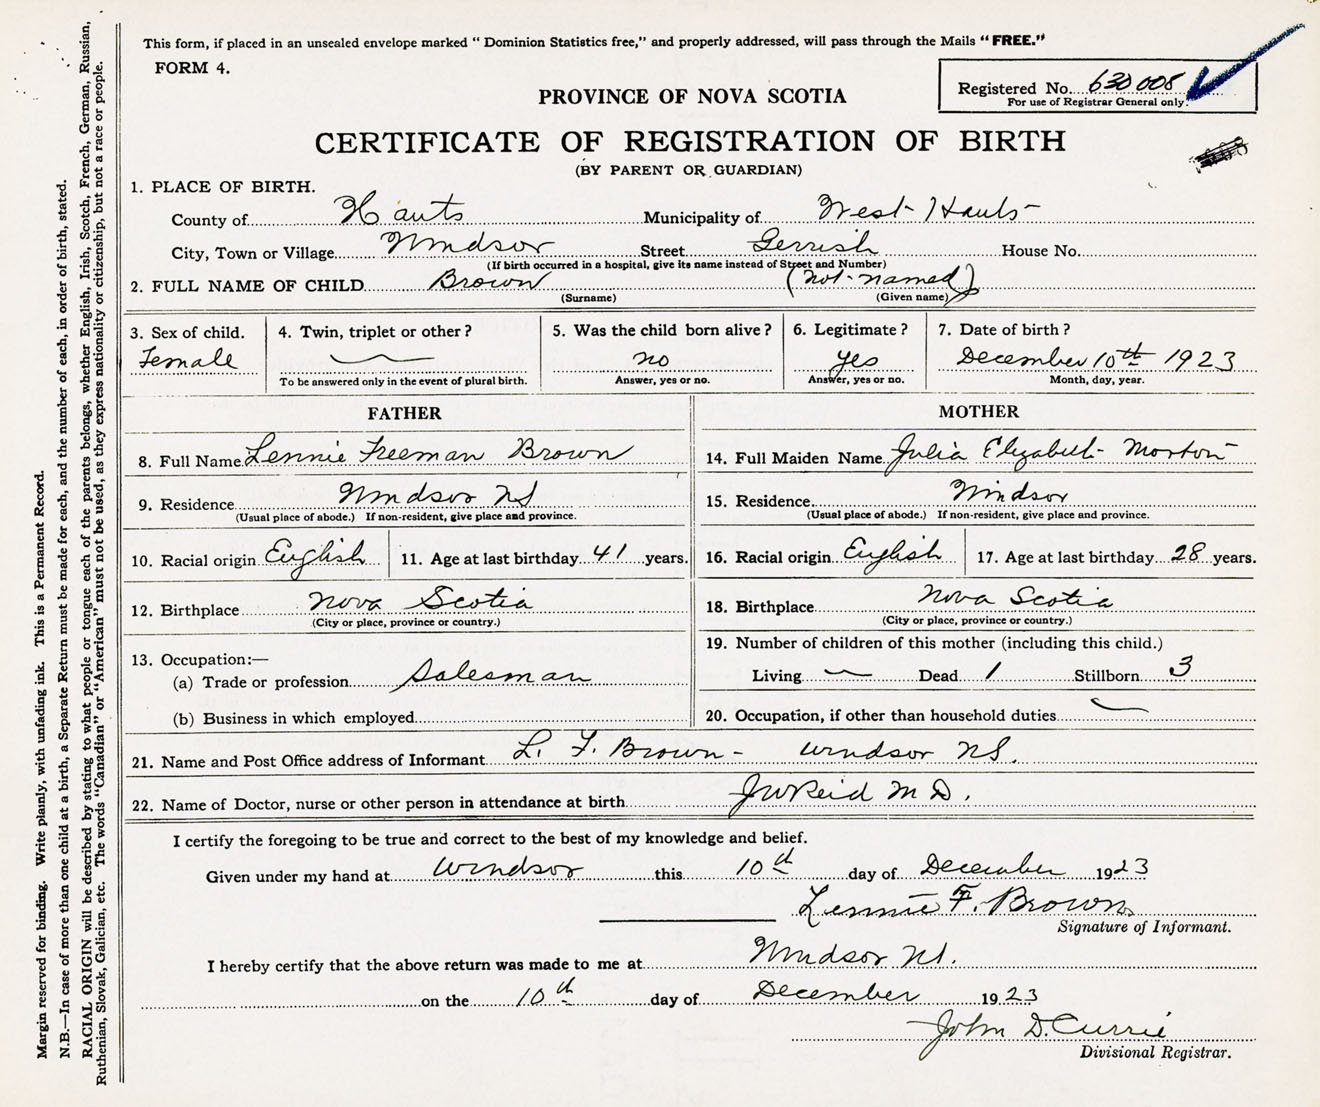 This form, if placed in an unsealed envelope marked "Dominion Statistics free," and properly addressed, will pass through the Mails "FREE."
FORM 4.
Registered No. 630008
For use of Registrar General only.
PROVINCE OF NOVA SCOTIA
CERTIFICATE OF REGISTRATION OF BIRTH
(BY PARENT OR GUARDIAN)
1. PLACE OF BIRTH.
County of Hants Municipality of West Hants
City, Town or Village Windsor Street Gerrish House No.
(If birth occurred in a hospital, give its name instead of Street and Number)
2. FULL NAME OF CHILD Brown (not named)
(Surname) (Given name)
3. Sex of child. 4. Twin, triplet or other? 5. Was the child born alive? 6. Legitimate? 7. Date of birth?
Female no yes December 10th 1923
To be answered only in the event of plural birth. Answer, yes or no. Answer, yes or no. Month, day, year.
FATHER MOTHER
8. Full Name Lennie Freeman Brown 14. Full Maiden Name Julia Elizabeth Morton
9. Residence Windsor NS 15. Residence Windsor
(Usual place of abode.) If non-resident, give place and province. (Usual place of abode.) If non-resident, give place and province.
10. Racial origin English 11. Age at last birthday 41 years. 16. Racial origin English 17. Age at last birthday 28 years.
12. Birthplace Nova Scotia 18. Birthplace Nova Scotia
(City or place, province or country.) (City or place, province or country.)
13. Occupation:— 19. Number of children of this mother (including this child.)
(a) Trade or profession Salesman Living Dead 1 Stillborn 3
(b) Business in which employed 20. Occupation, if other than household duties
21. Name and Post Office address of Informant L. F. Brown - Windsor NS.
22. Name of Doctor, nurse or other person in attendance at birth JW Reid M D.
I certify the foregoing to be true and correct to the best of my knowledge and belief.
Given under my hand at Windsor this 10th day of December 1923
Lennie F. Brown
Signature of Informant.
I hereby certify that the above return was made to me at Windsor NS.
on the 10th day of December 1923
John D. Currie
Divisional Registrar.
Margin reserved for binding. Write plainly, with unfading ink. This is a Permanent Record.
N.B.—In case of more than one child at a birth, a Separate Return must be made for each, and the number of each, in order of birth, stated.
RACIAL ORIGIN will be described by stating to what people or tongue each of the parents belongs, whether English, Irish, Scotch, French, German, Russian,
Ruthenian, Slovak, Galician, etc. The words "Canadian" or "American" must not be used, as they express nationality or citizenship, but not a race or people.